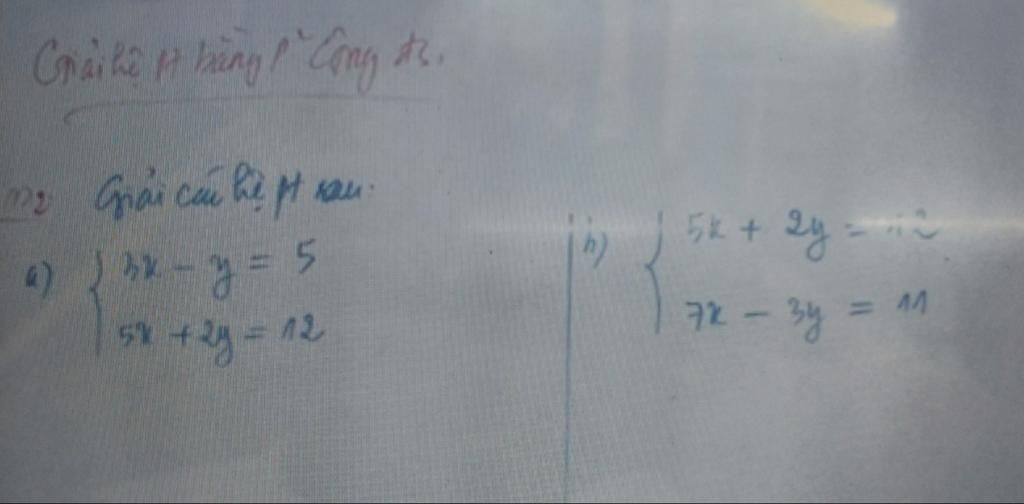 Giải hệ pt bằng p² Cộng đs.
Giải các hệ pt sau:
a) { 3x - y = 5
5x + 2y = 12
b) { 5x + 2y = 12
7x - 3y = 11